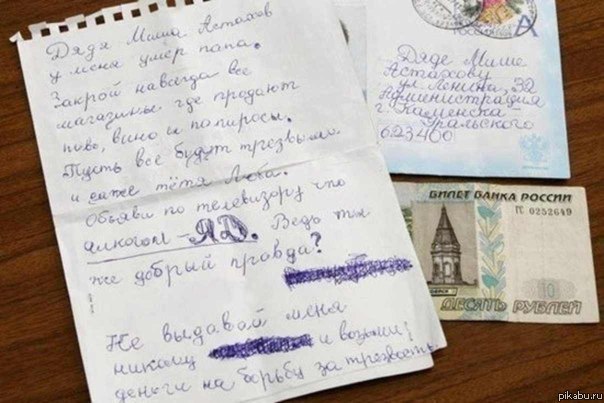 Дядя Миша Астахов
у меня умер папа.
Закрой навсегда все
магазины где продают
пиво, вино и папиросы.
Пусть все будут трезвыми
и даже тётя Люба.
Объяви по телевизору что
алкоголь - ЯД. Ведь ты
же добрый правда?
Не выдавай меня
никому и возьми
деньги на борьбу за трезвость
Дяде Мише
Астахову
ул. Ленина, 32
Администрация
г. Каменска
Уральского
623400
А
БИЛЕТ БАНКА РОССИИ
0252649
10
ДЕСЯТЬ РУБЛЕЙ
pikabu.ru